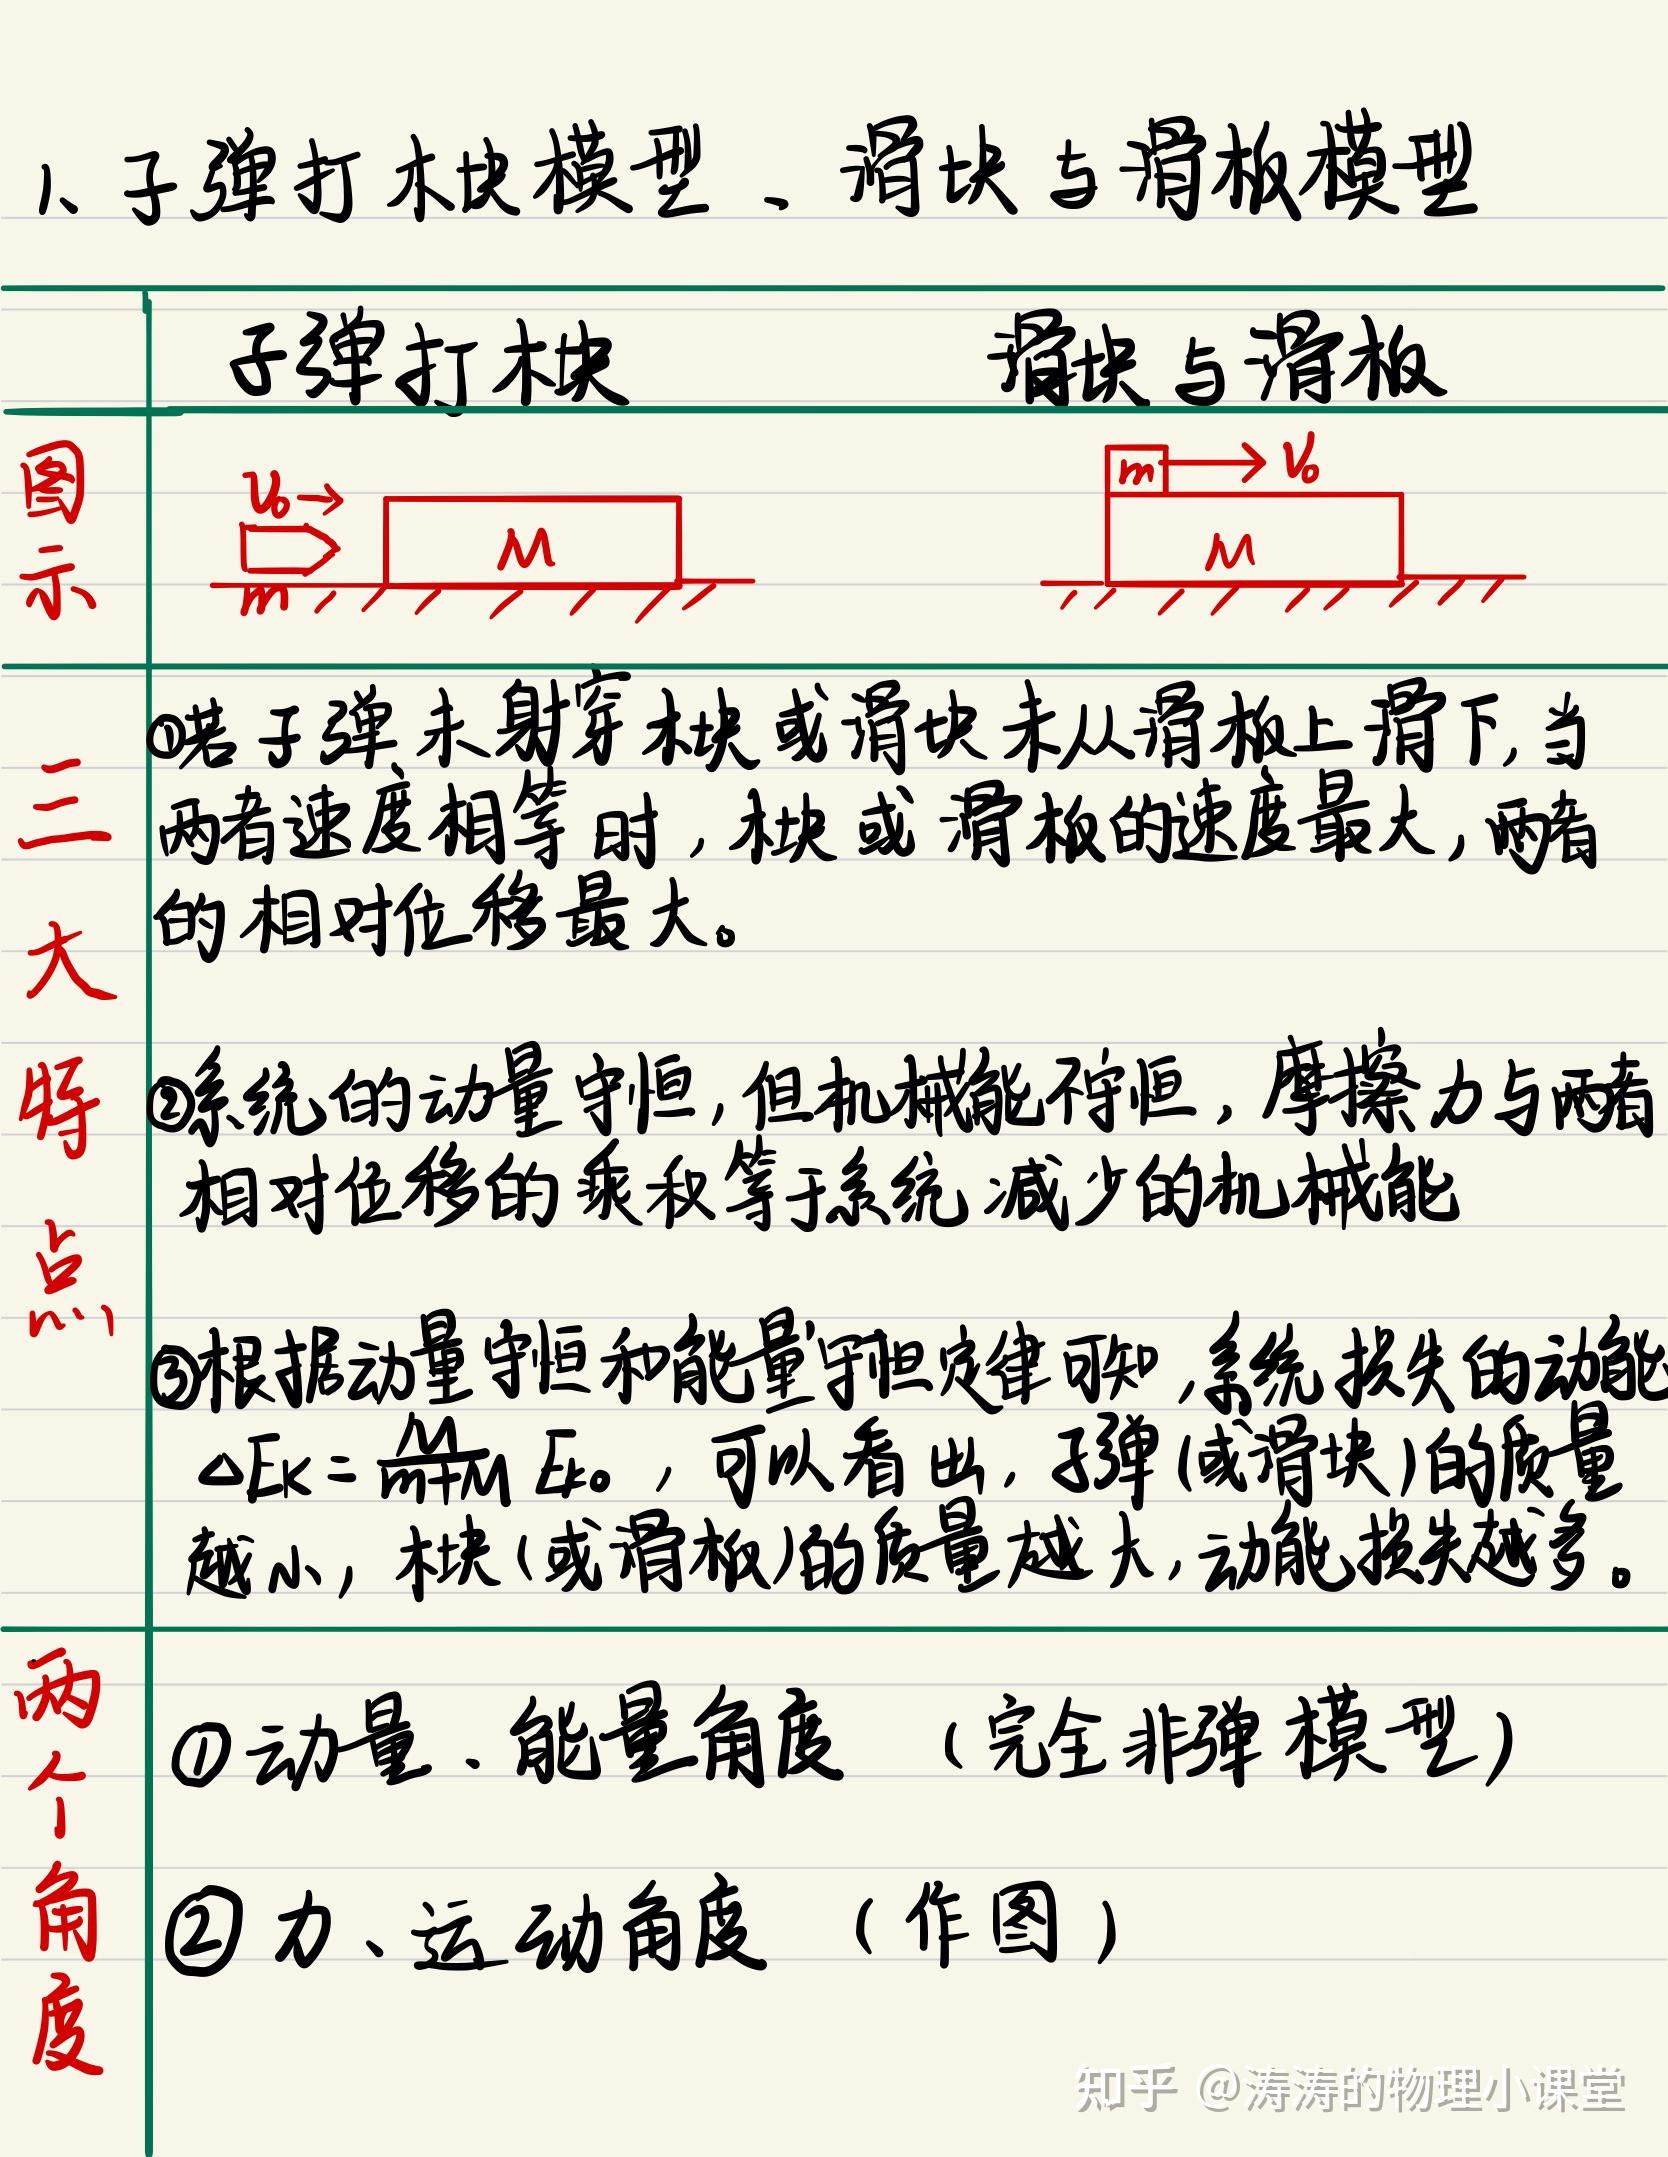 1、子弹打木块模型、滑块与滑板模型
子弹打木块 滑块与滑板
图示
V₀ m M
m V₀ M
三大特点
①若子弹未射穿木块或滑块未从滑板上滑下,当
两者速度相等时,木块或滑板的速度最大,两者
的相对位移最大。
②系统的动量守恒,但机械能不守恒,摩擦力与两者
相对位移的乘积等于系统减少的机械能
③根据动量守恒和能量守恒定律可知,系统损失的动能
△Eₖ=M/(m+M) Eₖ₀,可以看出,子弹(或滑块)的质量
越小,木块(或滑板)的质量越大,动能损失越多。
两个角度
①动量、能量角度 (完全非弹模型)
②力、运动角度 (作图)
知乎 @涛涛的物理小课堂